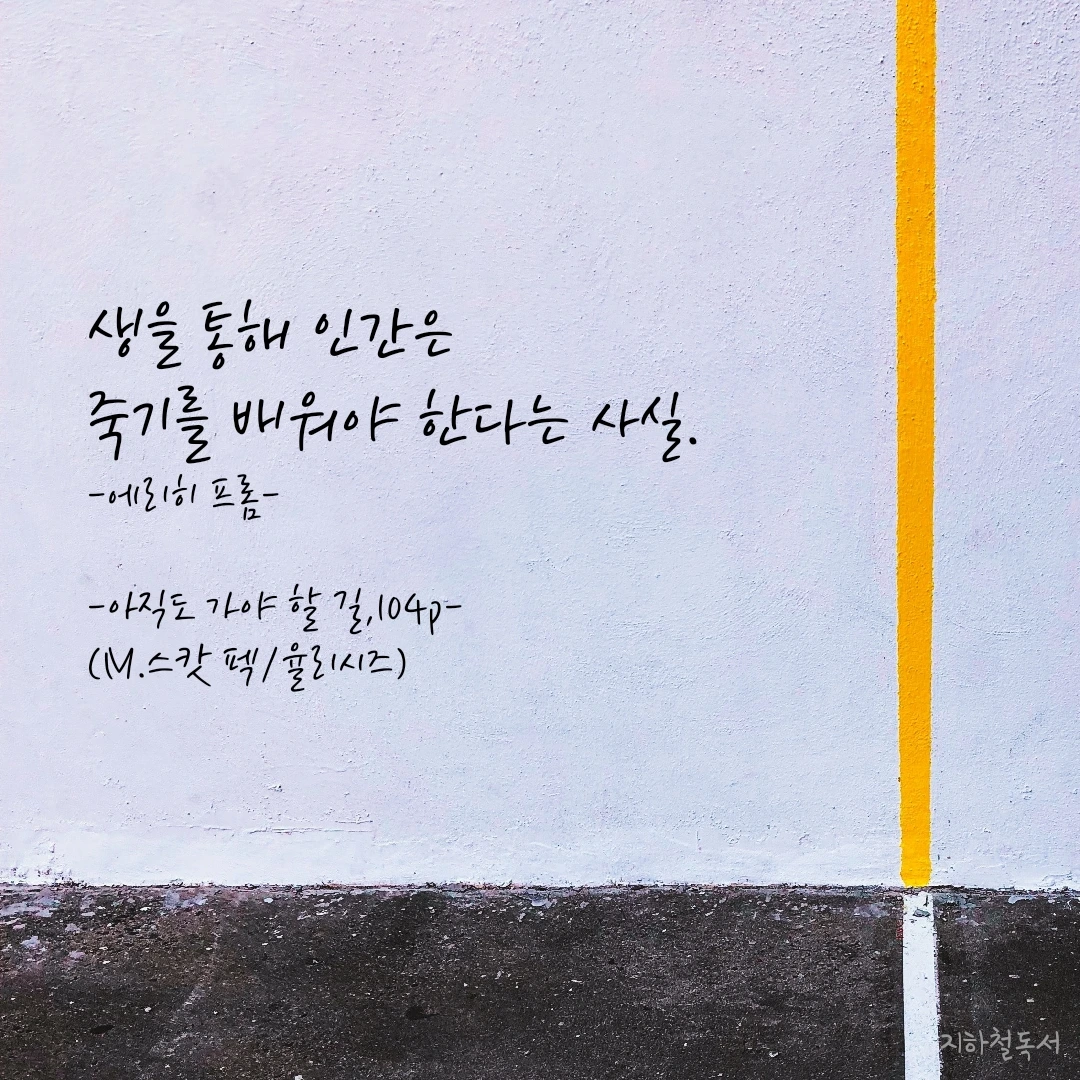 생을 통해 인간은
죽기를 배워야 한다는 사실.
-에리히 프롬-
-아직도 가야 할 길,104p-
(M.스캇 펙/율리시즈)
지하철독서